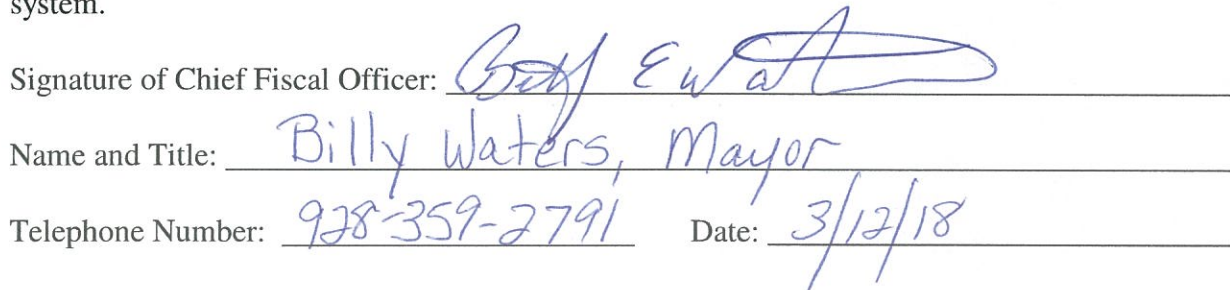 system.
Signature of Chief Fiscal Officer: Billy E Wat
Name and Title: Billy Waters, Mayor
Telephone Number: 928-359-2791 Date: 3/12/18